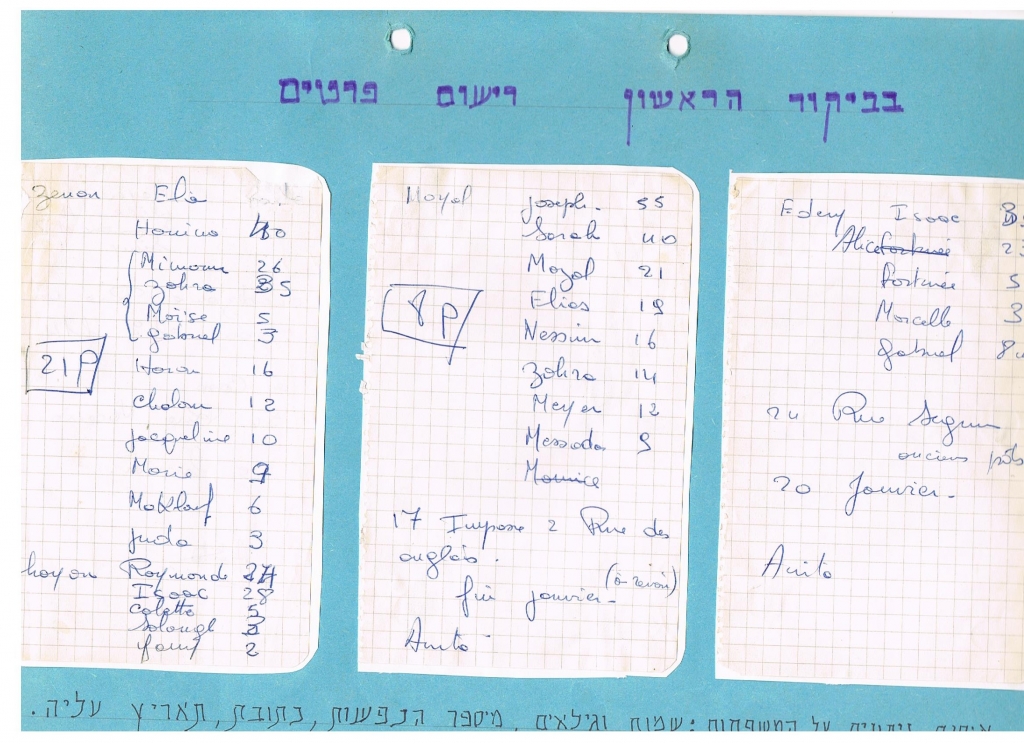 בביקור הראשון רישום פרטים
Zenon Elie
Hanina 40
Mimoun 26
Zohra 25
Moïse 5
Gabriel 3
21 P
Haron 16
Chalom 12
Jacqueline 10
Marie 9
Makhlouf 6
Juda 3
hayon Raymonde 24
Isaac 28
Colette 5
Solange 3
2
Moyal Joseph. 55
Sarah 40
Mazal 21
Elias 19
8 P
Nessim 16
Zohra 14
Meyer 12
Messoda 9
Maurice
17 Impasse 2 Rue des
anglais.
(à revoir)
fin janvier-
Anita
Edery Isaac
Alice fortunée
fortunée 5
Marcelle 3
Gabriel 8
24 Rue Seguin
anciens
20 Janvier-
Anita
על המשפחות: שמות וגילאים, מיספר הנפשות, כתובת, תאריץ עליה.